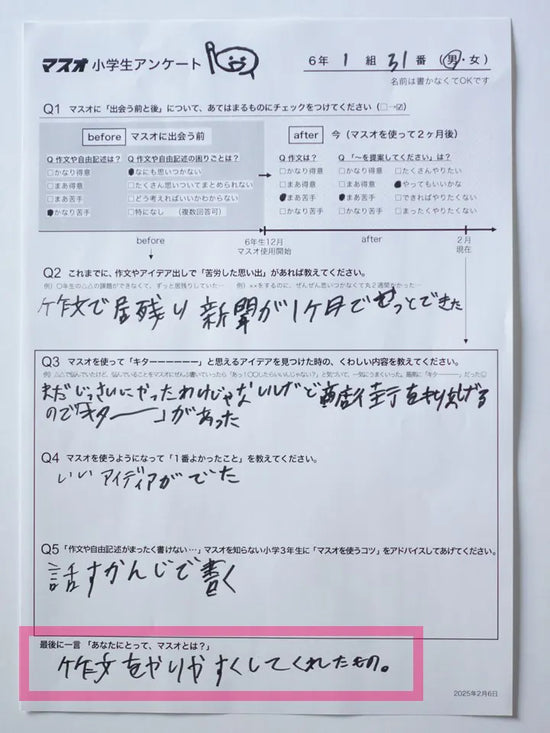 マスオ 小学生アンケート
6年 1 組 31 番 (男・女)
名前は書かなくてOKです
Q1 マスオに「出会う前と後」について、あてはまるものにチェックをつけてください(□→☑)
before マスオに出会う前
after 今(マスオを使って2ヶ月後)
Q 作文や自由記述は? Q 作文や自由記述の困りごとは?
Q 作文は? Q 「〜を提案してください」は?
□かなり得意 なにも思いつかない
□かなり得意 □かなり得意 □たくさんやりたい
□まあ得意 □たくさん思いついてまとめられない
□まあ得意 □まあ得意 やってもいいかな
□まあ苦手 □どう考えればいいかわからない
まあ苦手 まあ苦手 □できればやりたくない
かなり苦手 □特になし (複数回答可)
□かなり苦手 □かなり苦手 □まったくやりたくない
before
6年生12月
マスオ使用開始
after
2月
現在
Q2 これまでに、作文やアイデア出しで「苦労した思い出」があれば教えてください。
例)〇年生の△△の課題ができなくて、ずっと居残りしていた… 例)××をするのに、ぜんぜん思いつかなくて丸2週間かかった…
作文で居残り 新聞が1ヶ月でやっとできた
Q3 マスオを使って「キターーーーーー」と思えるアイデアを見つけた時の、くわしい内容を教えてください。
まだじっさいにやったわけじゃないけど商店街を
ので「キターー」があった
Q4 マスオを使うようになって「1番よかったこと」を教えてください。
いいアイディアがでた
Q5 「作文や自由記述がまったく書けない…」マスオを知らない小学3年生に「マスオを使うコツ」をアドバイスしてあげてください。
話すかんじで書く
最後に一言 「あなたにとって、マスオとは?」
作文をやりやすくしてくれたもの。
2025年2月6日